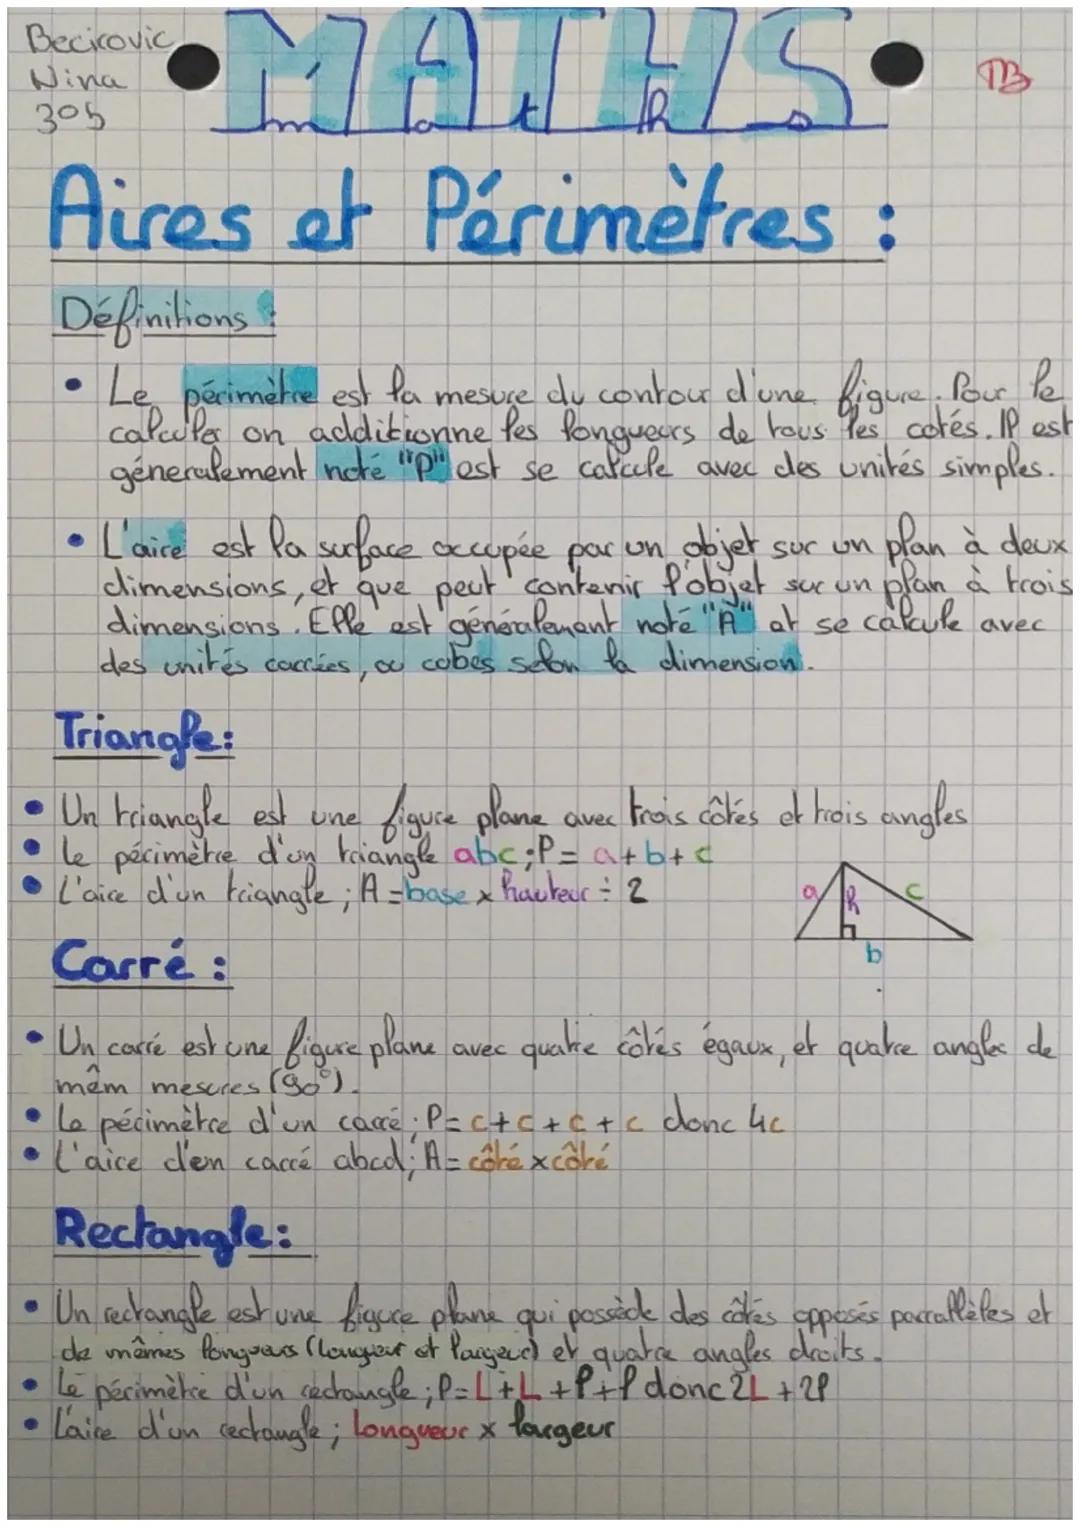 Becirovic
Nina
305
MATHS
maths
TB
Aires et Périmètres :
Définitions :
• Le périmètre est la mesure du contour d'une figure. Pour le
calculer on additionne les longueurs de tous les cotés. Il est
géneralement noté "P" est se calcule avec des unités simples.
• L'aire est la surface occupée par un objet sur un plan à deux
dimensions, et que peut contenir l'objet sur un plan à trois
dimensions. Elle est généralement noté "A" et se calcule avec
des unités carrées, ou cubes selon la dimension.
Triangle:
• Un triangle est une figure plane avec trois côtés et trois angles
• Le périmètre d'un triangle abc ; P = a + b + c
• L'aire d'un triangle ; A = base x hauteur ÷ 2
a h c
b
Carré :
• Un carré est une figure plane avec quatre côtés égaux, et quatre angles de
mêm mesures (90°).
• Le périmètre d'un carré ; P = c + c + c + c donc 4c
• L'aire d'en carré abcd ; A = côté x côté
Rectangle:
• Un rectangle est une figure plane qui possède des côtés opposés parrallèles et
de mêmes longueurs (longueur et largeur) et quatre angles droits.
• Le périmètre d'un rectangle ; P = L + L + l + l donc 2L + 2l
• L'aire d'un rectangle ; longueur x largeur